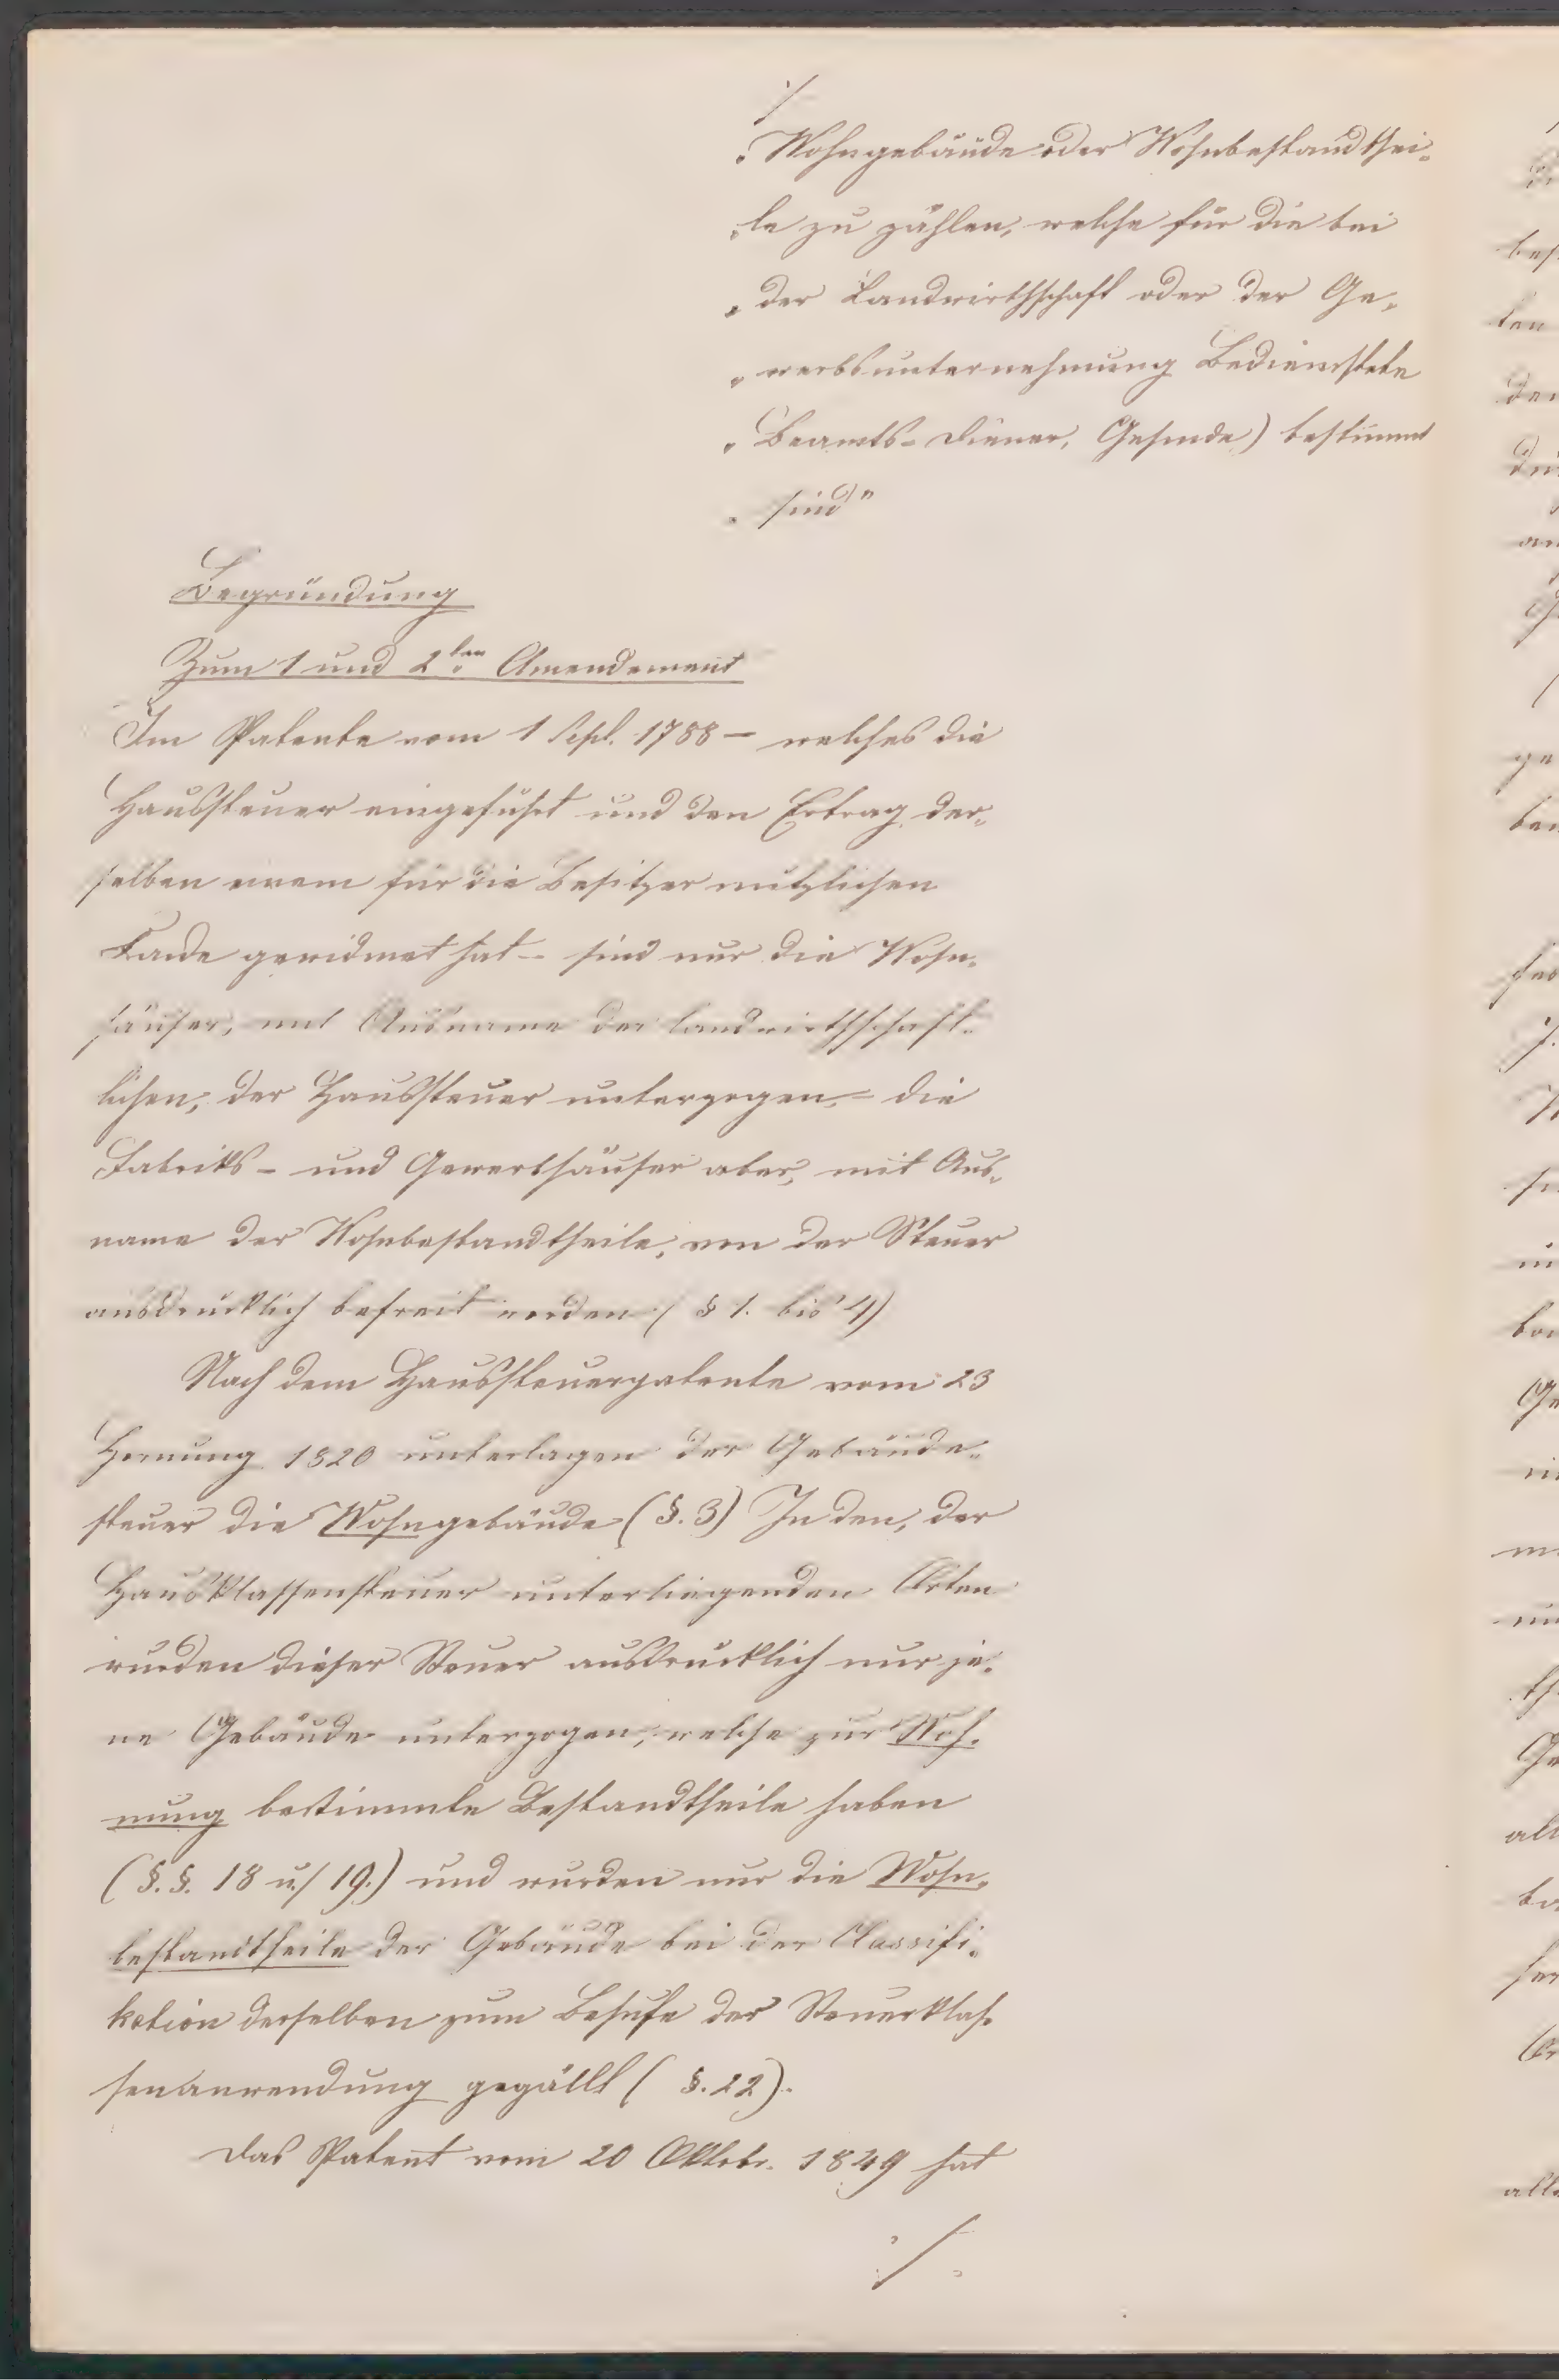 ./.
„Wohngebäude oder Wohnbestandthei-
„le zu zählen, welche für die bei
„der Landwirthschaft oder der Ge-
„werbsunternehmung Bedienstete
„Beamts-Diener, Gesinde) bestimmt
„sind"
Begründung
Zum 1 und 2ten Amendement
Im Patente vom 1 Sept. 1788 – welches die
Haussteuer eingeführt und den Ertrag der-
selben einem für die Besitzer nützlichen
Fonde gewidmet hat – sind nur die Wohn-
häuser, mit Ausname der landwirthschaft-
lichen, der Haussteuer unterzogen, – die
Fabriks- und Gewerbhäuser aber, mit Aus-
name der Wohnbestandtheile, von der Steuer
ausdrücklich befreit worden (§ 1. bis 4)
Nach dem Haussteuerpatente vom 23
Hornung 1820 unterlagen der Gebäude-
steuer die Wohngebäude (§. 3) In den, der
Hausklassensteuer unterliegenden Orten
wurden dieser Steuer ausdrücklich nur je-
ne Gebäude unterzogen, welche zur Woh-
nung bestimmte Bestandtheile haben
(§.§. 18 u/ 19.) und wurden nur die Wohn-
bestandtheile der Gebäude bei der Classifi-
kation derselben zum Behufe der Steuerklas-
senanwendung gezällt (§. 22).
Das Patent vom 20 Oktobr. 1849 hat
./.